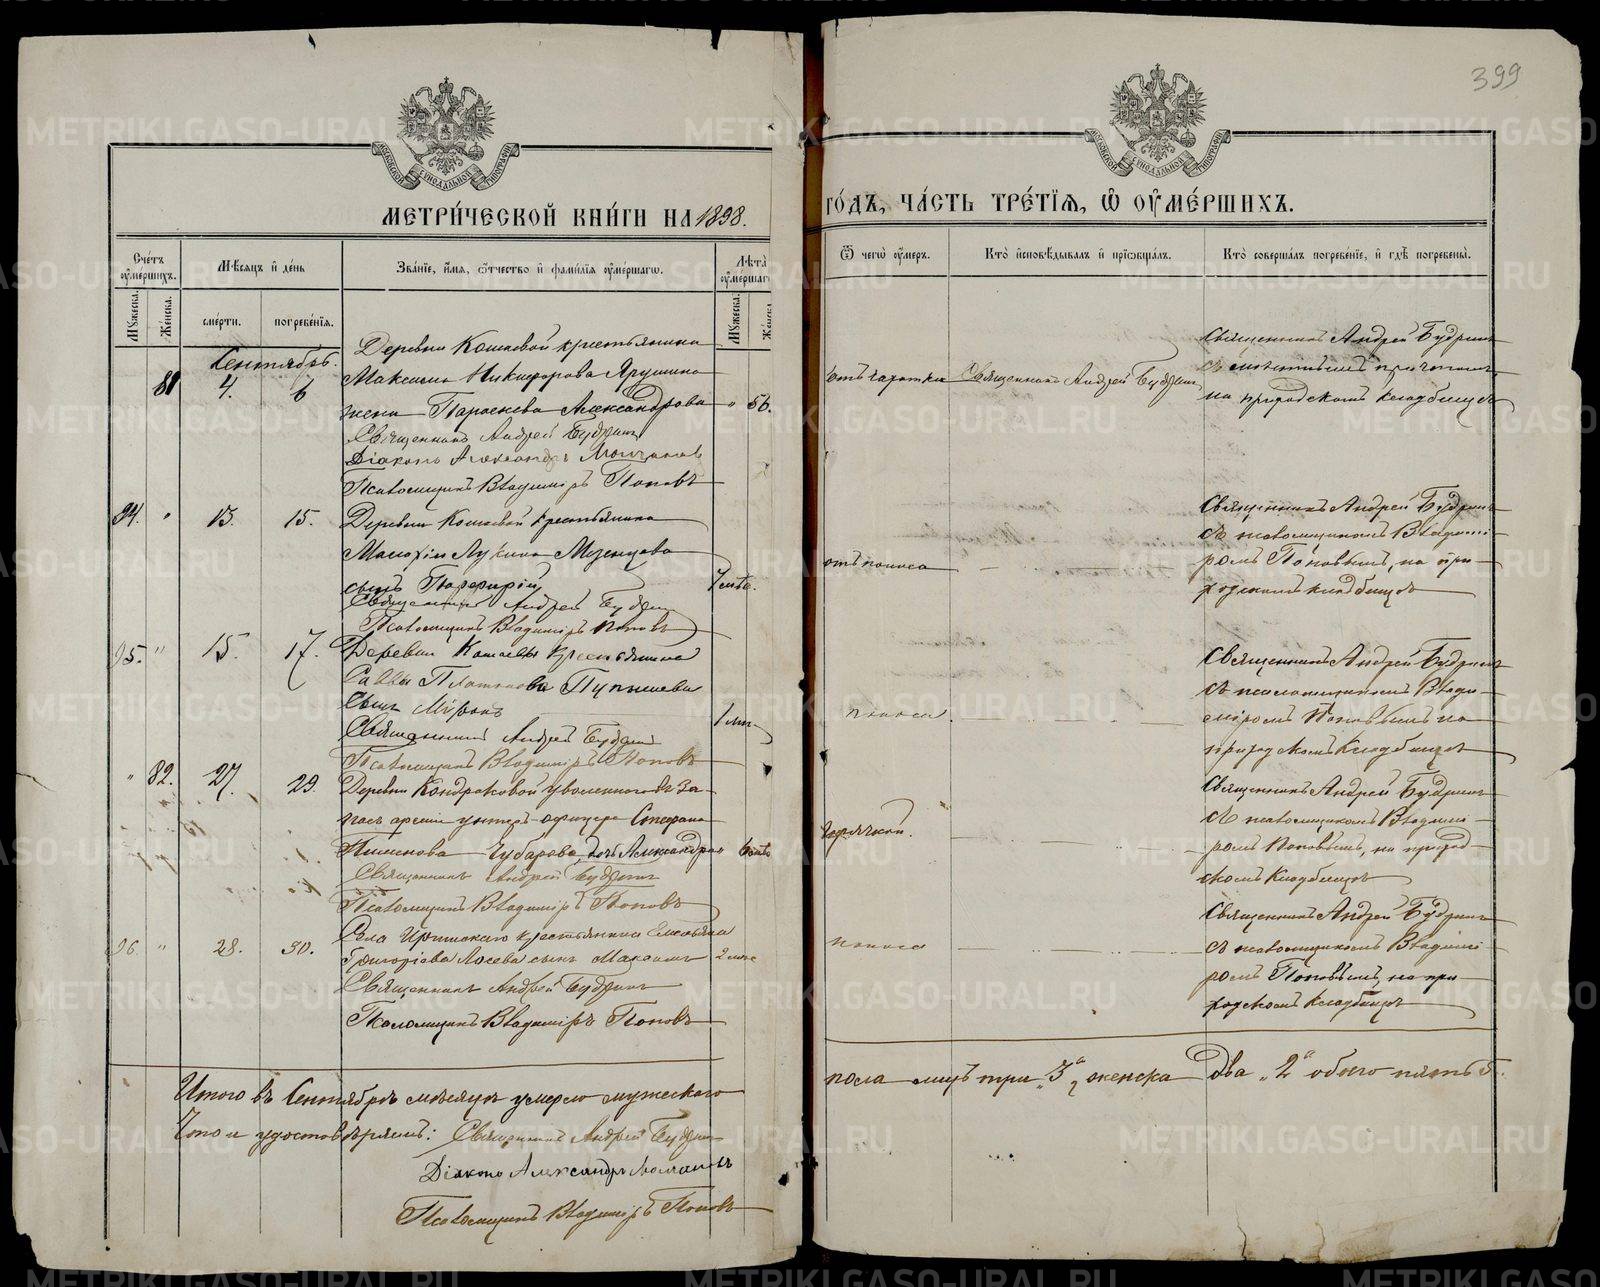 399
МЕТРИ́ЧЕСКОЙ КНИ́ГИ НА 1898.
ГО́ДЪ, ЧА́СТЬ ТРЕ́ТЇѦ, Ѽ ОУ҆МЕ́РШИХЪ.
Сче́тъ оу҆ме́ршихъ.
Мѣ́сѧцъ и҆ де́нь
Зва́нїе, и҆́мѧ, ѻ҆́тчество и҆ фами́лїѧ оу҆ме́ршагѡ.
Лѣ́та оу҆ме́ршагѡ
Ѿ чегѡ̀ оу҆́меръ.
Кто̀ и҆сповѣ́дывалъ и҆ прїѡбща́лъ.
Кто̀ соверша́лъ погребе́нїе, и҆ гдѣ̀ погребены̀.
Мꙋ́жеска.
Же́нска.
сме́рти.
погребе́нїѧ.
Мꙋ́жеска.
Сентябрь.
81 4. 6
Деревни Кошаевой крестьянина
Максима Никифорова Ярушина
жена Параскева Александрова " 56.
Священникъ Андрей Будринъ
Діаконъ Александръ
Псаломщикъ Владиміръ Поповъ
отъ чахотки
Священникъ Андрей Будринъ
Священникъ Андрей Будринъ
съ причтомъ,
на приходскомъ кладбищѣ
94. " 13. 15.
Деревни Кошаевой крестьянина
Лукина Мезенцова
сынъ Порфирій
Священникъ Андрей Будринъ
Псаломщикъ Владиміръ Поповъ
отъ поноса
Священникъ Андрей Будринъ
съ псаломщикомъ Владимі-
ромъ Поповымъ, на при-
ходскомъ кладбищѣ
95. " 15. 17.
Деревни Кошаевы крестьянина
Саввы Платонова Пупышева
сынъ
Священникъ Андрей Будринъ
Псаломщикъ Владиміръ Поповъ
поноса.
Священникъ Андрей Будринъ
съ псаломщикомъ Влади-
міромъ Поповымъ на
приходскомъ кладбищѣ
" 82. 27. 29.
Деревни Кондраковой уволеннаго въ за-
пасъ арміи унтеръ-офицера Стефана
Пименова Чубарова дочь Александра
Священникъ Андрей Будринъ
Псаломщикъ Владиміръ Поповъ
горячкой.
Священникъ Андрей Будринъ
съ псаломщикомъ Владимі-
ромъ Поповымъ, на приход-
скомъ кладбищѣ
96. " 28. 30.
Села крестьянина Емельяна
Григоріева Лосева сынъ Максимъ
Священникъ Андрей Будринъ
Псаломщикъ Владиміръ Поповъ
поноса
Священникъ Андрей Будринъ
съ псаломщикомъ Владимі-
ромъ Поповымъ, на при-
ходскомъ кладбищѣ
Итого въ Сентябрѣ мѣсяцѣ умерло мужескаго
пола лицъ три „3", женска два „2" обоего пять 5.
Что и удостовѣряемъ: Священникъ Андрей Будринъ
Діаконъ Александръ
Псаломщикъ Владиміръ Поповъ
METRIKI.GASO-URAL.RU